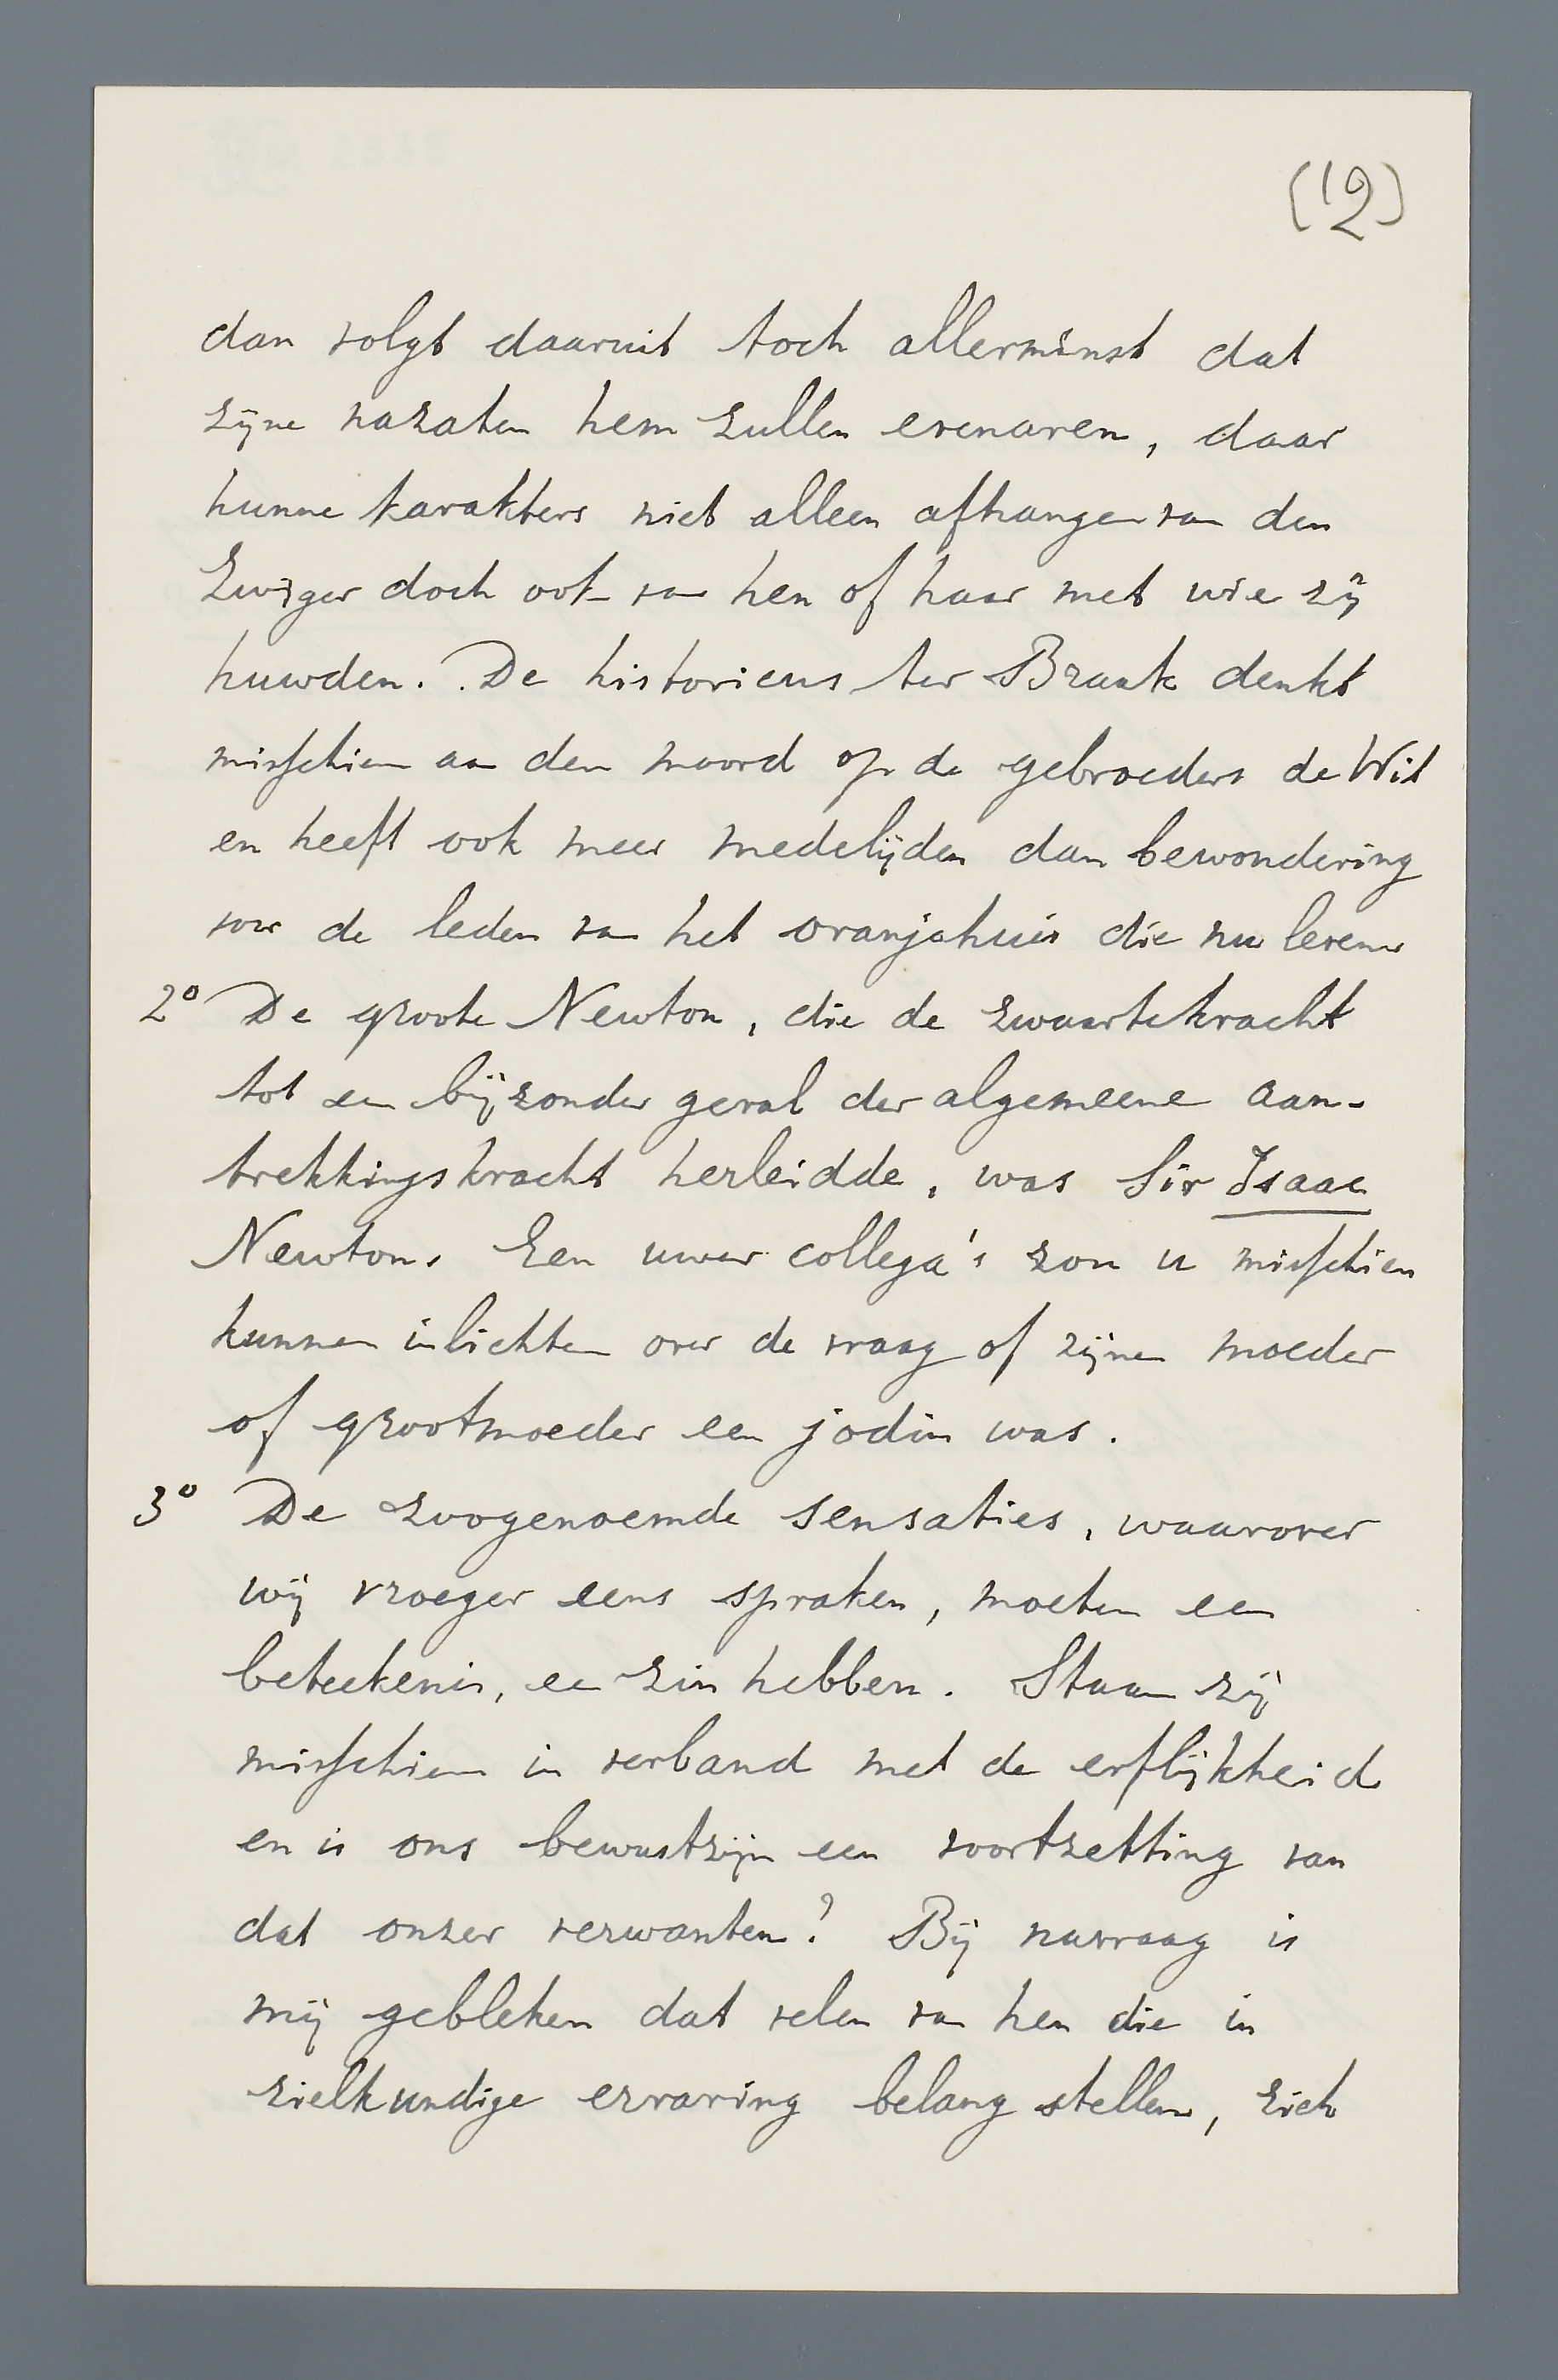 (12)
dan volgt daaruit toch allerminst dat
zijne nazaten hem zullen evenaren, daar
hunne karakters niet alleen afhangen van den
Zwijger doch ook van hen of haar met wie zij
huwden. De historicus ter Braak denkt
misschien aan den moord op de gebroeders de Wit
en heeft ook meer medelijden dan bewondering
voor de leden van het oranjehuis die nu leven
2° De groote Newton, die de zwaartekracht
tot een bijzonder geval der algemeene aan-
trekkingskracht herleidde, was Sir Isaac
Newton. Een uwer collega's zou u misschien
kunnen inlichten over de vraag of zijne moeder
of grootmoeder een jodin was.
3° De zoogenoemde sensaties, waarover
wij vroeger eens spraken, moeten een
beteekenis, een zin hebben. Staan zij
misschien in verband met de erflijkheid
en is ons bewustzijn een voortzetting van
dat onzer verwanten? Bij navraag is
mij gebleken dat velen van hen die in
zielkundige ervaring belang stellen, zich